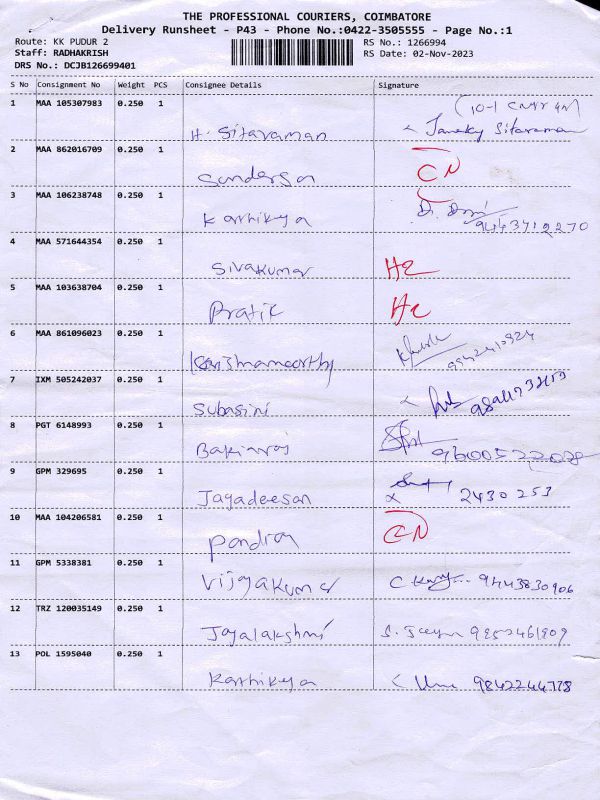 THE PROFESSIONAL COURIERS, COIMBATORE
Delivery Runsheet - P43 - Phone No.:0422-3505555 - Page No.:1
Route: KK PUDUR 2 RS No.: 1266994
Staff: RADHAKRISH RS Date: 02-Nov-2023
DRS No.: DCJB126699401
S No Consignment No Weight PCS Consignee Details Signature
1 MAA 105307983 0.250 1 H. Sitaraman Janaky Sitaraman
2 MAA 862016709 0.250 1 Sundersan CN
3 MAA 106238748 0.250 1 Karthikeya 9443712270
4 MAA 571644354 0.250 1 Sivakumar
5 MAA 103638704 0.250 1 Pratik
6 MAA 861096023 0.250 1 Krishnamoorthy
7 IXM 505242037 0.250 1 Subasini
8 PGT 6148993 0.250 1 Bakiaraj
9 GPM 329695 0.250 1 Jayadeesan 2430253
10 MAA 104206581 0.250 1 CN
11 GPM 5338381 0.250 1 Vijayakumar 9443830906
12 TRZ 120035149 0.250 1 Jayalakshmi
13 POL 1595040 0.250 1 Karthikeya 9842244778